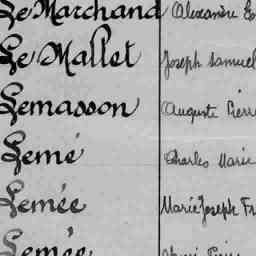 Le Marchand Alexandre
Le Mallet Joseph Samuel
Lemasson Auguste Pierre
Lemé Charles Marie
Lemée Marie Joseph Fr
Lemée